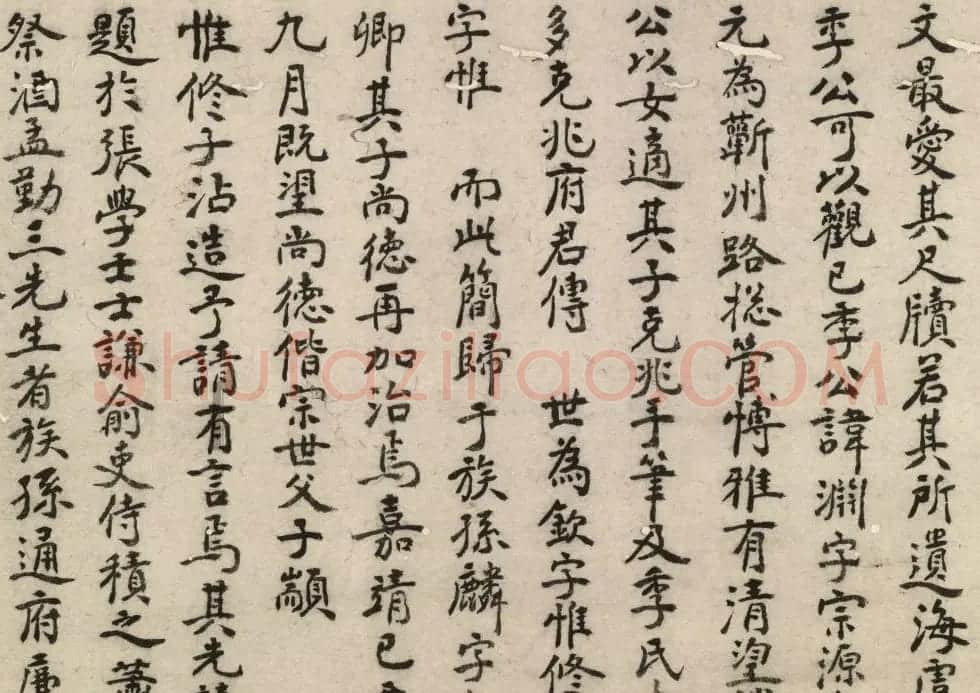 文最愛其尺牘若其所遺海
季公可以觀已季公諱淵字宗源
元為蘄州路捴管博雅有清望
公以女適其子克兆手筆及季民
多克兆府君傳 世為欽字惟修
字惟 而此簡歸于族孫麟字
卿其子尚德再加治焉嘉靖己
九月既望尚德偕宗世父子顓
惟修子沾造予請有言焉其先
題於張學士士謙俞吏侍積之蕭
祭酒孟勤三先生者族孫通府廉
shufaziliao.COM